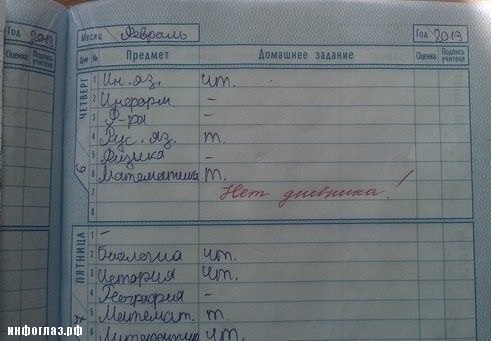 Год 2013
Месяц Февраль
Год 2013
Оценка
Подпись учителя
Дни
№
Предмет
Домашнее задание
Оценка
Подпись учителя
ЧЕТВЕРГ
6
1 Ин. яз. чт.
2 Информ. -
3 Ф-ра -
4 Рус. яз. т.
5 Физика -
6 Математика т.
7 Нет дневника!
8
ПЯТНИЦА
7
1 -
2 Биология чт.
3 История чт.
4 География -
5 Математ. т.
6 Литература чт.
инфоглаз.рф